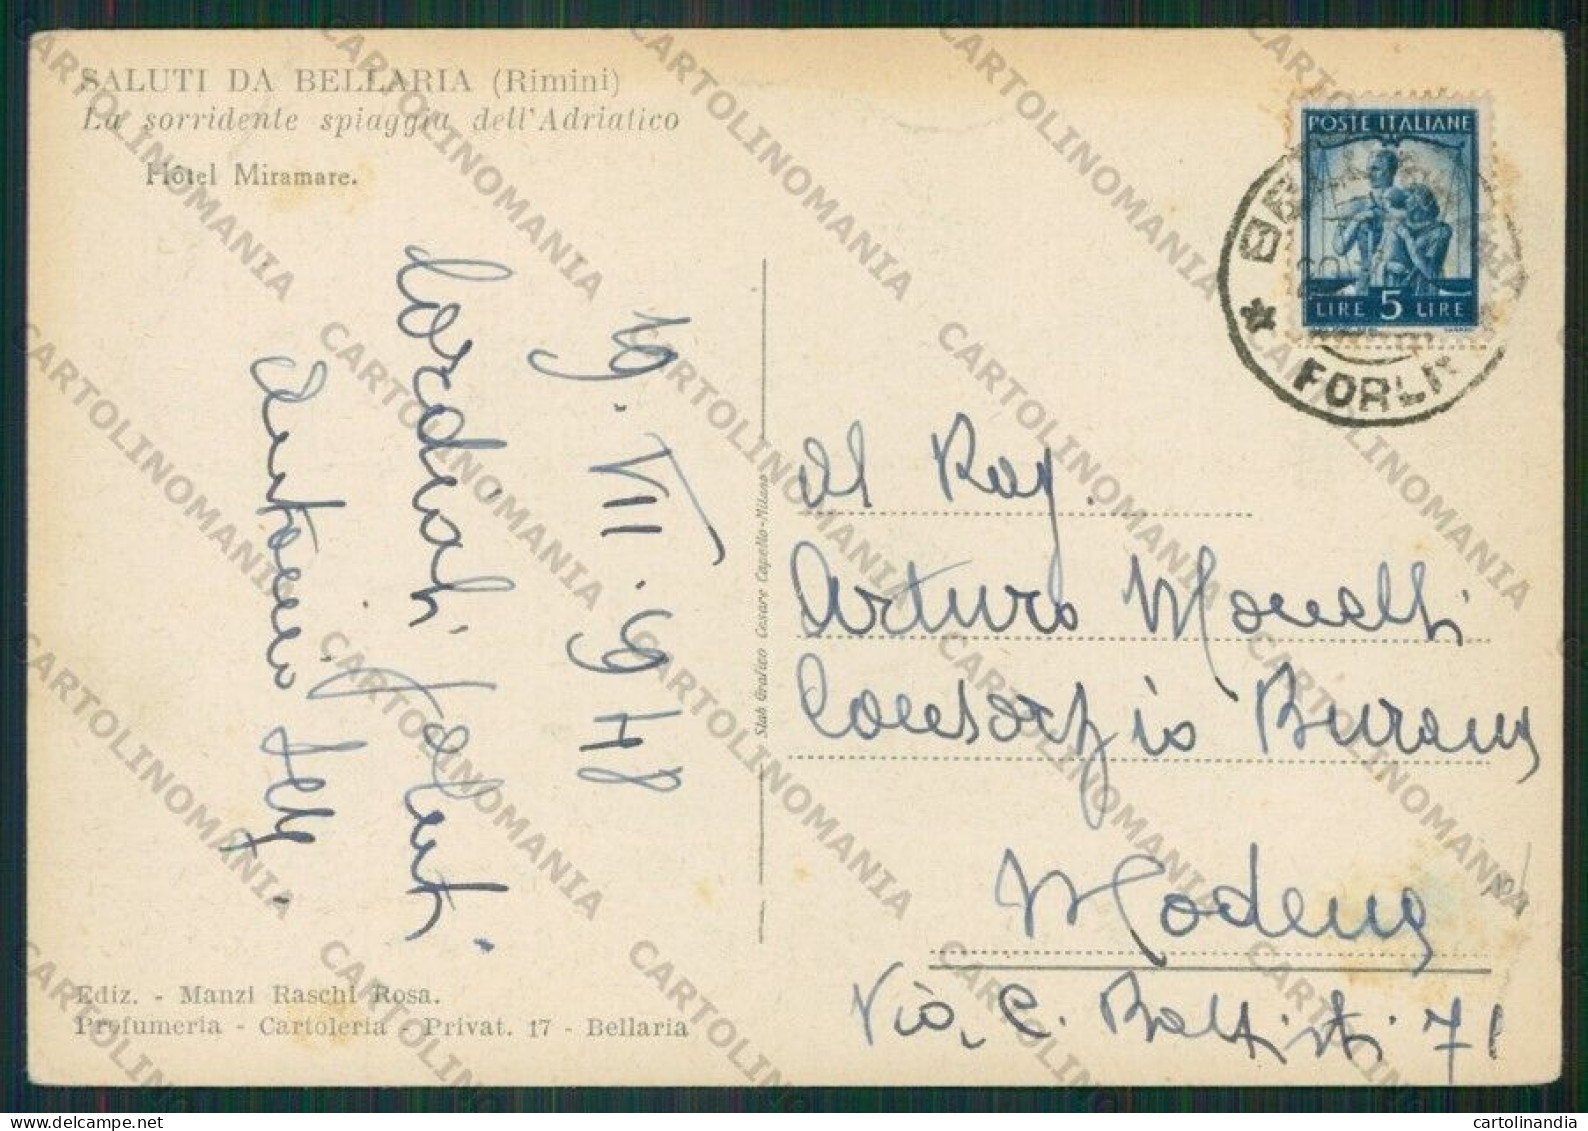 SALUTI DA BELLARIA (Rimini)
La sorridente spiaggia dell'Adriatico
Hôtel Miramare.
19. VII. 948
Cordiali saluti
POSTE ITALIANE
LIRE 5 LIRE
FORLI
Stab Grafico Cesare Capello-Milano
Al Rag.
Arturo Morselli
Consorzio Burana
Modena
Via C. Battisti 71
Ediz. - Manzi Raschi Rosa.
Profumeria - Cartoleria - Privat. 17 - Bellaria
CARTOLINOMANIA
cartolinandia